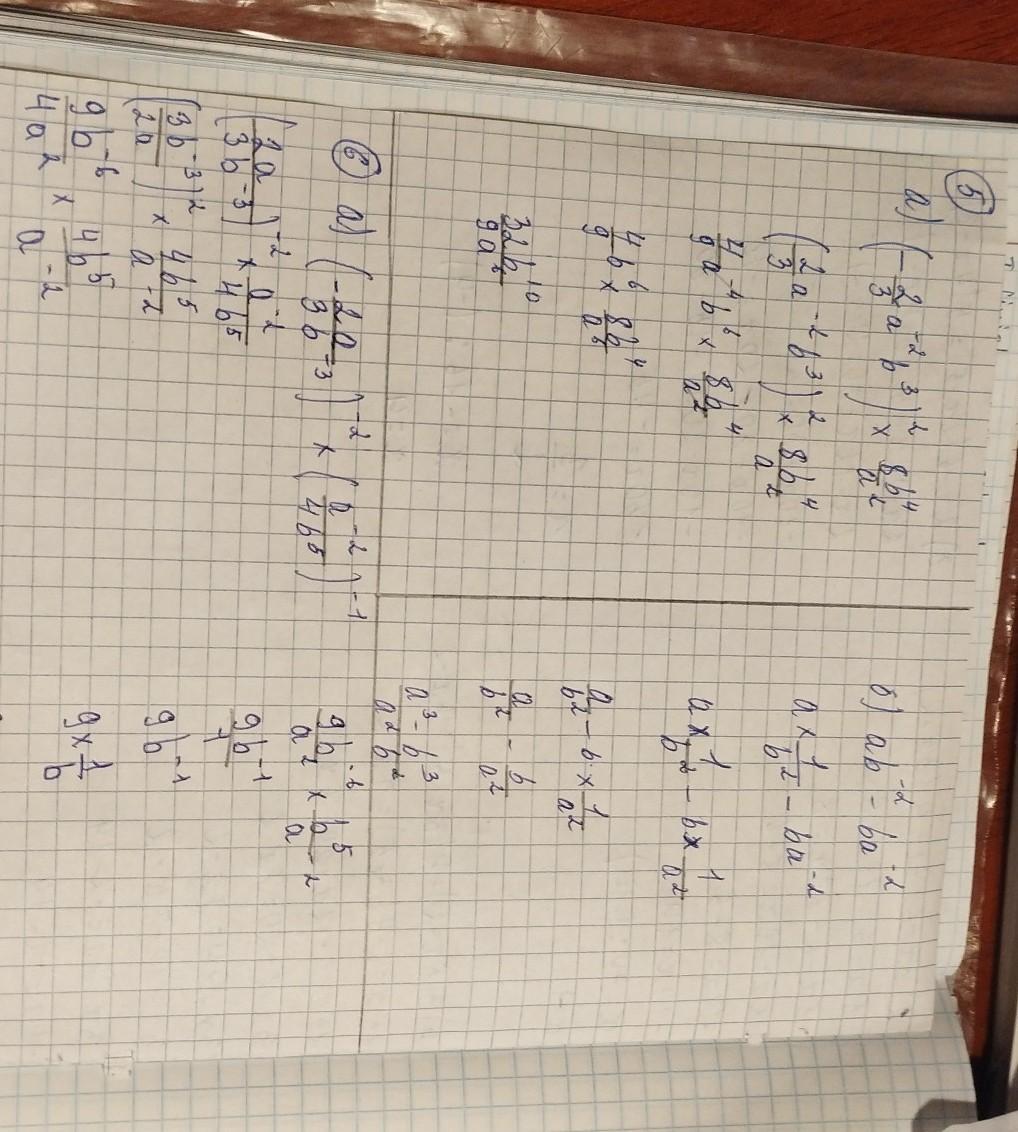 ⑤
а) (-2/3 a^-2 b^3)^2 × 8b^4/a^2
(2/3 a^-2 b^3)^2 × 8b^4/a^2
4/9 a^-4 b^6 × 8b^4/a^2
4/9 b^6 × 8b^4/a^6
32b^10/9a^6
б) ab^-2 - ba^-2
a × 1/b^2 - ba^-2
a × 1/b^2 - b × 1/a^2
a/b^2 - b × 1/a^2
a/b^2 - b/a^2
a^3 - b^3/a^2 b^2
⑥ а) (-2a/3b^-3)^-2 × (a^-2/4b^5)^-1
(2a/3b^-3)^-2 × a^-2/4b^5
(3b^-3/2a)^2 × 4b^5/a^-2
9b^-6/4a^2 × 4b^5/a^-2
9b^-6/a^2 × b^5/a^-2
9b^-1/1
9b^-1
9 × 1/b